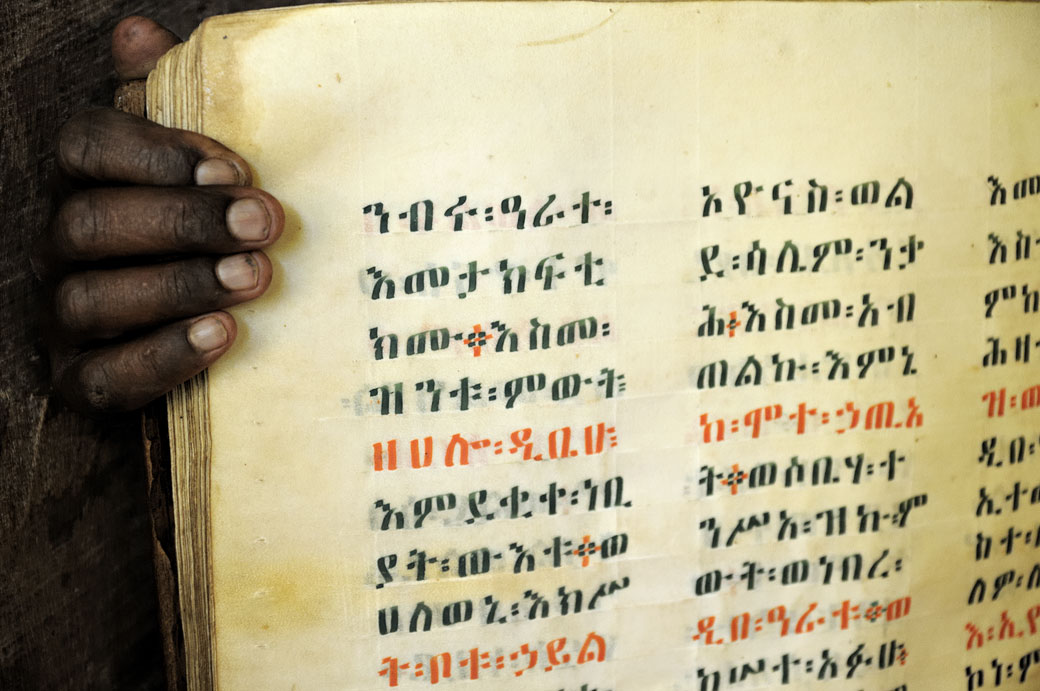 ንብሩ፡ዓራተ፡
እመታክፍቲ
ክሙ፨እስመ፡
ዝንቱ፡ምውት፡
ዘሀሎ፡ዲቢሁ፡
እምደቂቀ፡ነቢ
ያት፡ውእቱ፨ወ
ሀለወኒ፡እክሥ
ት፡ቦቱ፡ኃይል
ኦዮናስ፡ወል
ደ፡ሳሊም፡ንታ
ሕ፨እስመ፡አብ
ጠልኩ፡እምኒ
ከ፡ሞተ፡ኃጢአ
ት፨ወሶቢሃ፡ተ
ንሥአ፡ዝኩ፡ም
ውት፡ወነበረ፡
ዲበ፡ዓራቱ፨ወ
ከሠተ፡አፉሁ፡
እመ
እስ
ምክ
ሕዘ
ዝ፡ወ
ዲበ፡
ኢተ
ከተ፡
ለም፡ለ
እ፡ኢየ
ኮነ፡ም